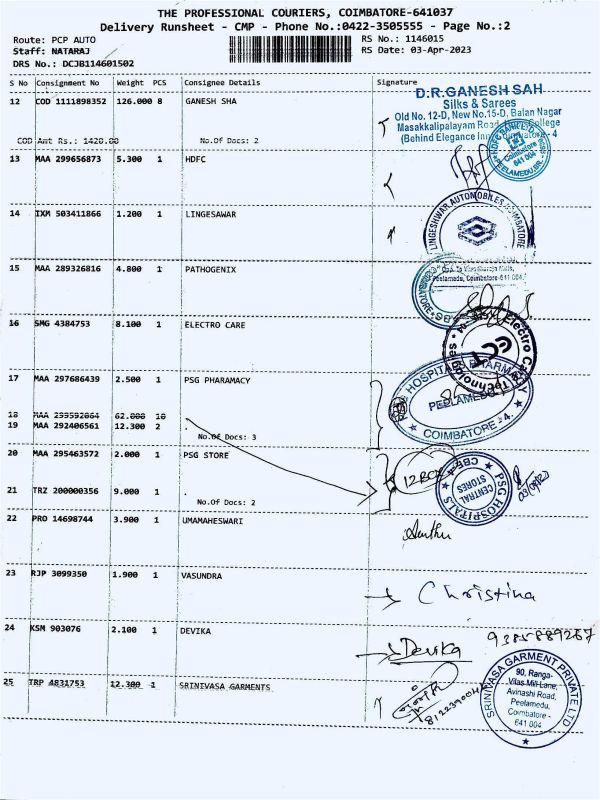 THE PROFESSIONAL COURIERS, COIMBATORE-641037
Delivery Runsheet - CMP - Phone No.:0422-3505555 - Page No.:2
Route: PCP AUTO
RS No.: 1146015
Staff: NATARAJ
RS Date: 03-Apr-2023
DRS No.: DCJB114601502
S No Consignment No Weight PCS Consignee Details Signature
12 COD 1111898352 126.000 8 GANESH SHA
D.R.GANESH SAH
Silks & Sarees
Old No. 12-D, New No.15-D, Balan Nagar
Masakkalipalayam Road College
(Behind Elegance Inn - 4
COD Amt Rs.: 1420.00 No.Of Docs: 2
HDFC BANK LTD
Coimbatore
641 004
PEELAMEDU BR.
13 MAA 299656873 5.300 1 HDFC
14 IXM 503411866 1.200 1 LINGESAWAR
LINGESHWAR AUTOMOBILES COIMBATORE
15 MAA 289326816 4.800 1 PATHOGENIX
Peelamedu, Coimbatore-641 004
16 SMG 4384753 8.100 1 ELECTRO CARE
Electro Care Technologies
ECT
17 MAA 297686439 2.500 1 PSG PHARAMACY
PSG HOSPITAL PHARMACY
PEELAMEDU
COIMBATORE - 4.
18 MAA 299592064 62.000 10
19 MAA 292406561 12.300 2
No.Of Docs: 3
20 MAA 295463572 2.000 1 PSG STORE
12 BOX
PSG HOSPITALS
CENTRAL
STORES
CBE-4
21 TRZ 200000356 9.000 1
No.Of Docs: 2
22 PRO 14698744 3.900 1 UMAMAHESWARI
23 RJP 3099350 1.900 1 VASUNDRA
Christina
24 KSM 903076 2.100 1 DEVIKA
Devika
9385889267
25 TRP 4831753 12.300 1 SRINIVASA GARMENTS
8122390041
SRINIVASA GARMENT PRIVATE LTD
90, Ranga-
Vilas Mill Lane,
Avinashi Road,
Peelamedu,
Coimbatore -
641 004